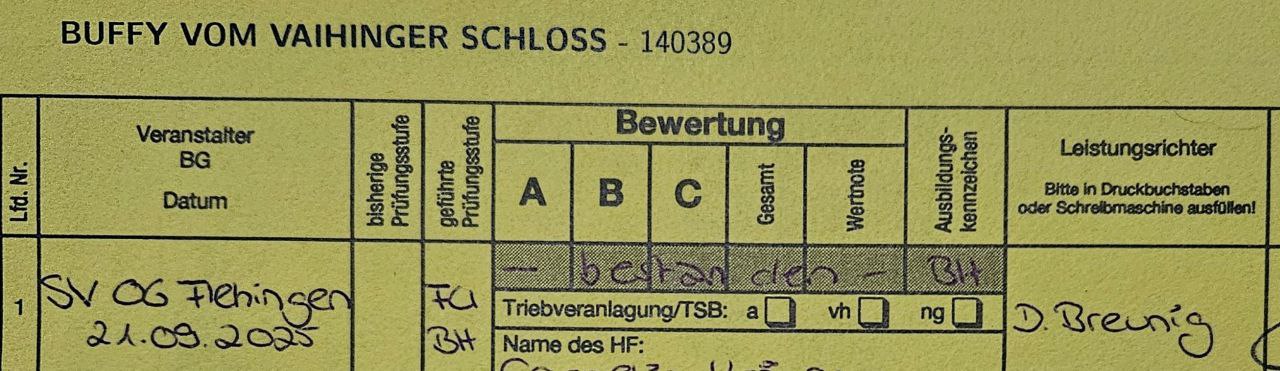 BUFFY VOM VAIHINGER SCHLOSS - 140389
Lfd. Nr.
Veranstalter
BG
Datum
bisherige
Prüfungsstufe
geführte
Prüfungsstufe
Bewertung
A B C Gesamt Wertnote
Ausbildungs-
kennzeichen
Leistungsrichter
Bitte in Druckbuchstaben
oder Schreibmaschine ausfüllen!
1
SV OG Flehingen
21.09.2025
FCI
BH
- bestanden - BH
Triebveranlagung/TSB: a vh ng
Name des HF:
D. Breunig